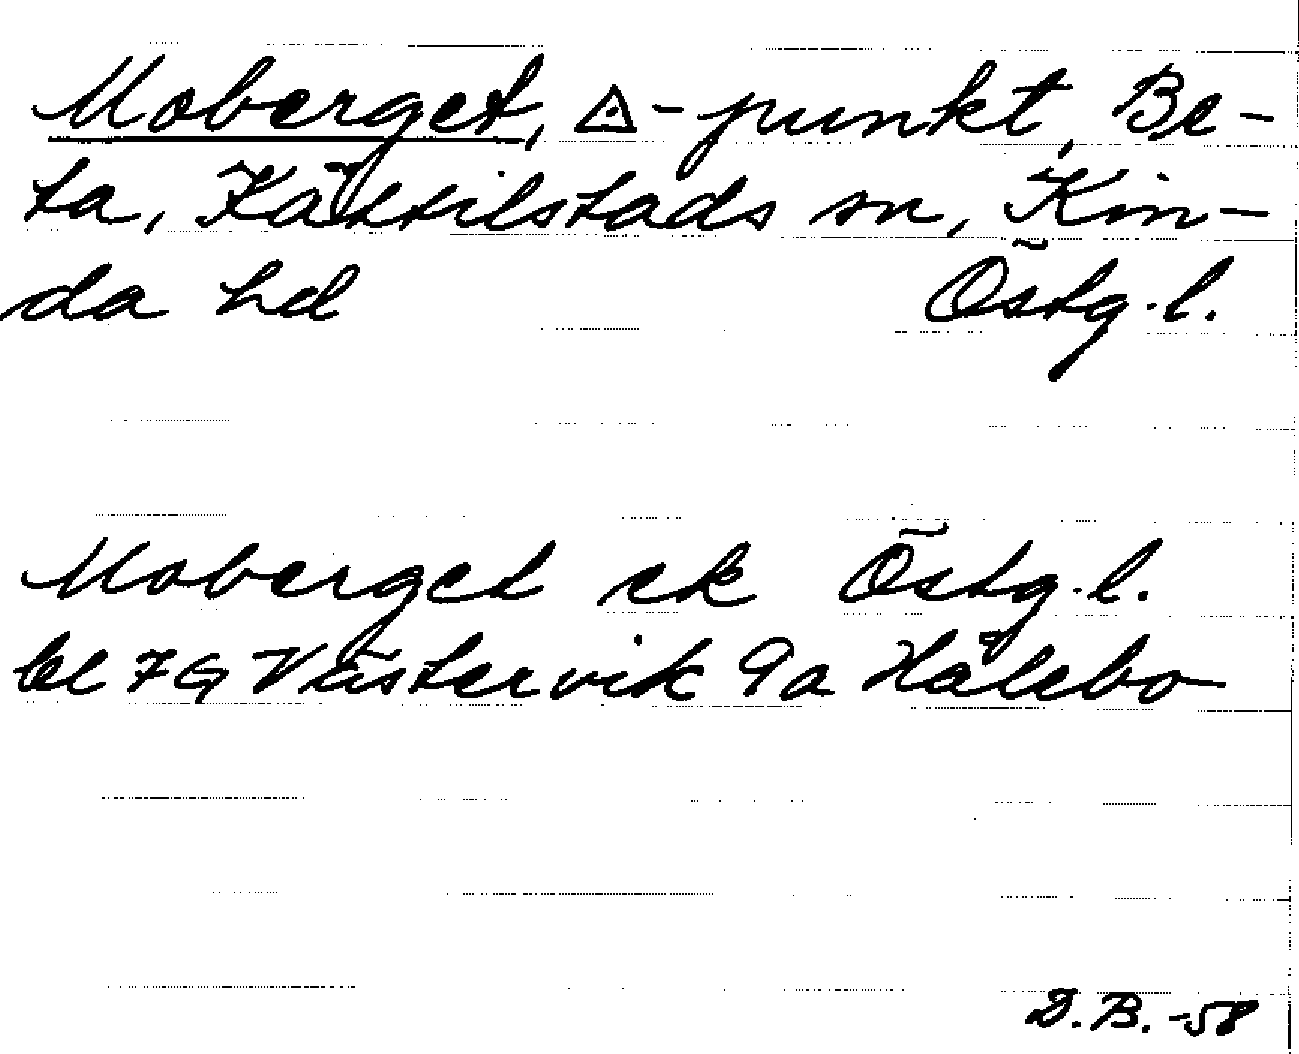 Moberget, △-punkt, Be-
ta, Kättilstads sn, Kin-
da hd Östg.l.
Moberget ek Östg.l.
bl 7G Västervik 9a Hålebo
D.B. -58